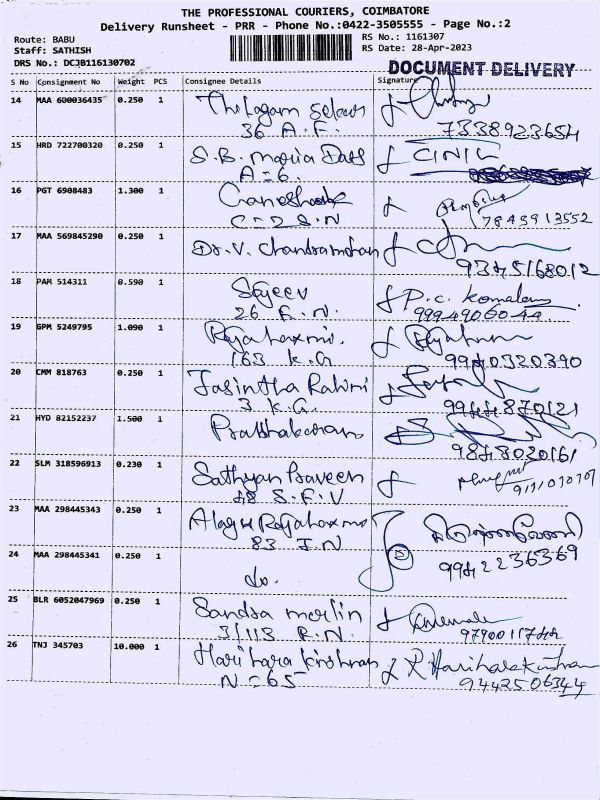 THE PROFESSIONAL COURIERS, COIMBATORE
Delivery Runsheet - PRR - Phone No.:0422-3505555 - Page No.:2
Route: BABU
RS No.: 1161307
Staff: SATHISH
RS Date: 28-Apr-2023
DRS No.: DCJB116130702
DOCUMENT DELIVERY
S No Consignment No Weight PCS Consignee Details Signature
14 MAA 600036435 0.250 1 Thilagam Selvan
36 A.F. 7338923654
15 HRD 722700320 0.250 1 S.B. Maria Dass CINIL
A=6.
16 PGT 6908483 1.300 1 Ganeshook
C=2 S.N 7845913552
17 MAA 569845290 0.250 1 Dr.V. Chandramohan
9345168012
18 PAM 514311 0.590 1 Sajeev P.C. Komalam
26 F.N. 9994906044
19 GPM 5249795 1.090 1 Rajalaxmi.
163 K.G 9940320390
20 CMM 818763 0.250 1 Jasintha Rahini
3 K.G. 9944870121
21 HYD 82152237 1.500 1 Prabhakaran
9843030161
22 SLM 318596913 0.230 1 Sathyan Praveen
48 S.F.V
23 MAA 298445343 0.250 1 Alagu Rajalaxmi
83 J.N 9942236369
24 MAA 298445341 0.250 1 do.
25 BLR 6052047969 0.250 1 Sandra merlin
3/113 R.N.
26 TNJ 345703 10.000 1 Harihara Krishnan R Hariharakrishnan
N=65 9442506344